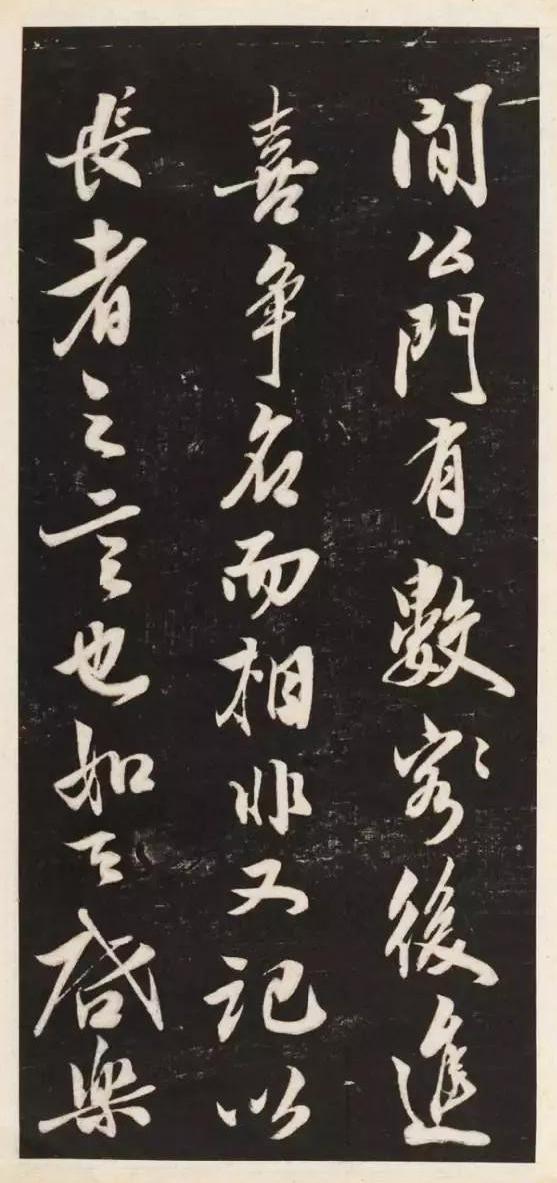 間公門有數客後進
喜爭名而相非又記以
長者之言也如天啓樂